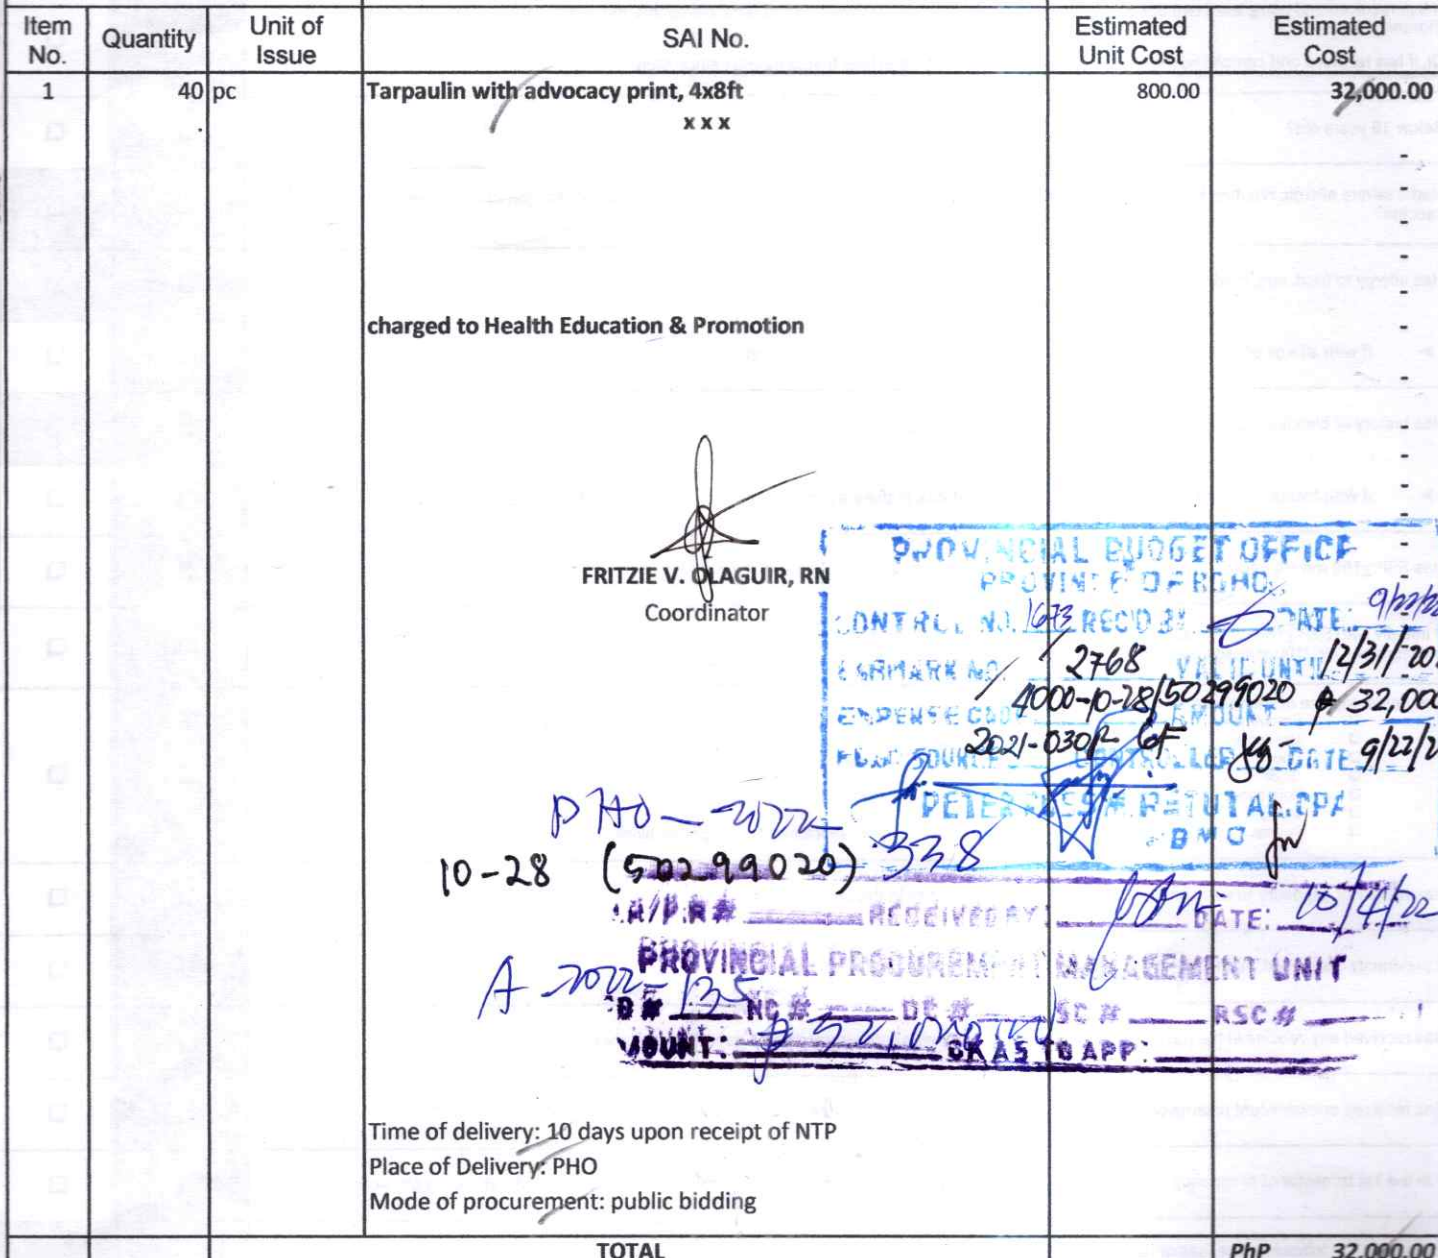 Item No. Quantity Unit of Issue SAI No. Estimated Unit Cost Estimated Cost
1 40 pc Tarpaulin with advocacy print, 4x8ft 800.00 32,000.00
x x x
charged to Health Education & Promotion
FRITZIE V. OLAGUIR, RN
Coordinator
PROVINCIAL BUDGET OFFICE
CONTROL NO. 1673 REC'D BY DATE:
EARMARK NO. 2768 VALID UNTIL 12/31/20
EXPENSE CODE 4000-10-28/50299020 AMOUNT ₱ 32,000
FUND SOURCE CONTROLLER DATE 9/22/2
BMO
PHO-2022-338
10-28 (50299020)
RECEIVED BY: DATE: 10/4/22
PROVINCIAL PROCUREMENT MANAGEMENT UNIT
A-2022-135
NC # DC # SC # RSC #
MOUNT: OK AS TO APP:
Time of delivery: 10 days upon receipt of NTP
Place of Delivery: PHO
Mode of procurement: public bidding
TOTAL PhP 32,000.00